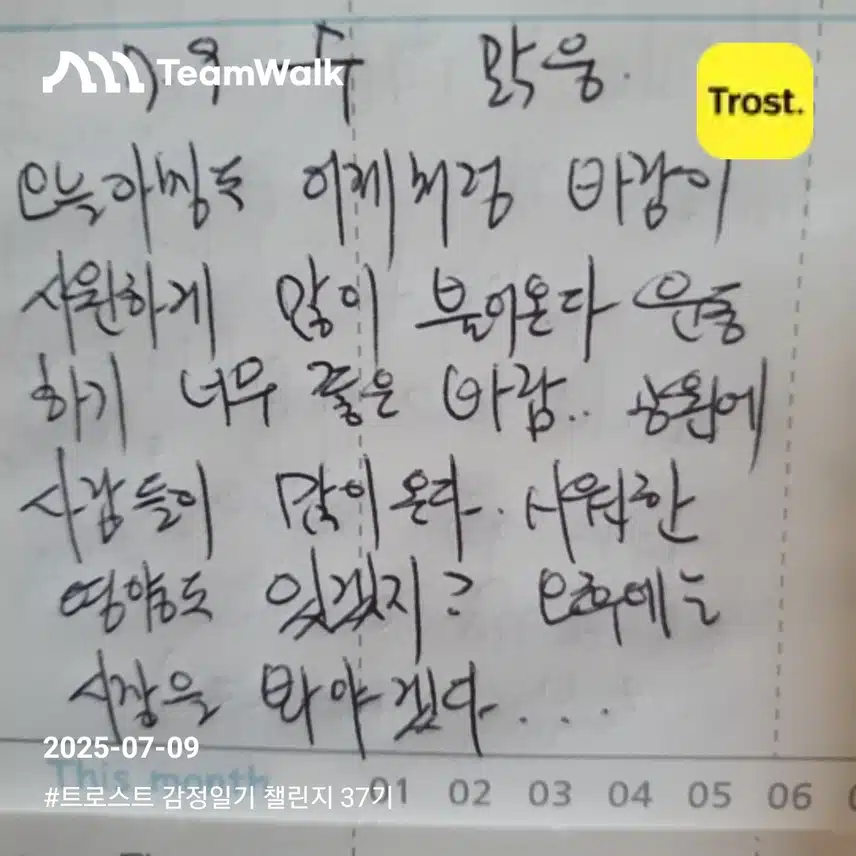 TeamWalk
수 맑음.
Trost.
오늘아침도 어제처럼 바람이
시원하게 많이 불어온다 운동
하기 너무 좋은 바람.. 공원에
사람들이 많이 온다. 시원한
영향도 있겠지? 오후에는
시장을 봐야겠다....
2025-07-09
This month 01 02 03 04 05 06
#트로스트 감정일기 챌린지 37기